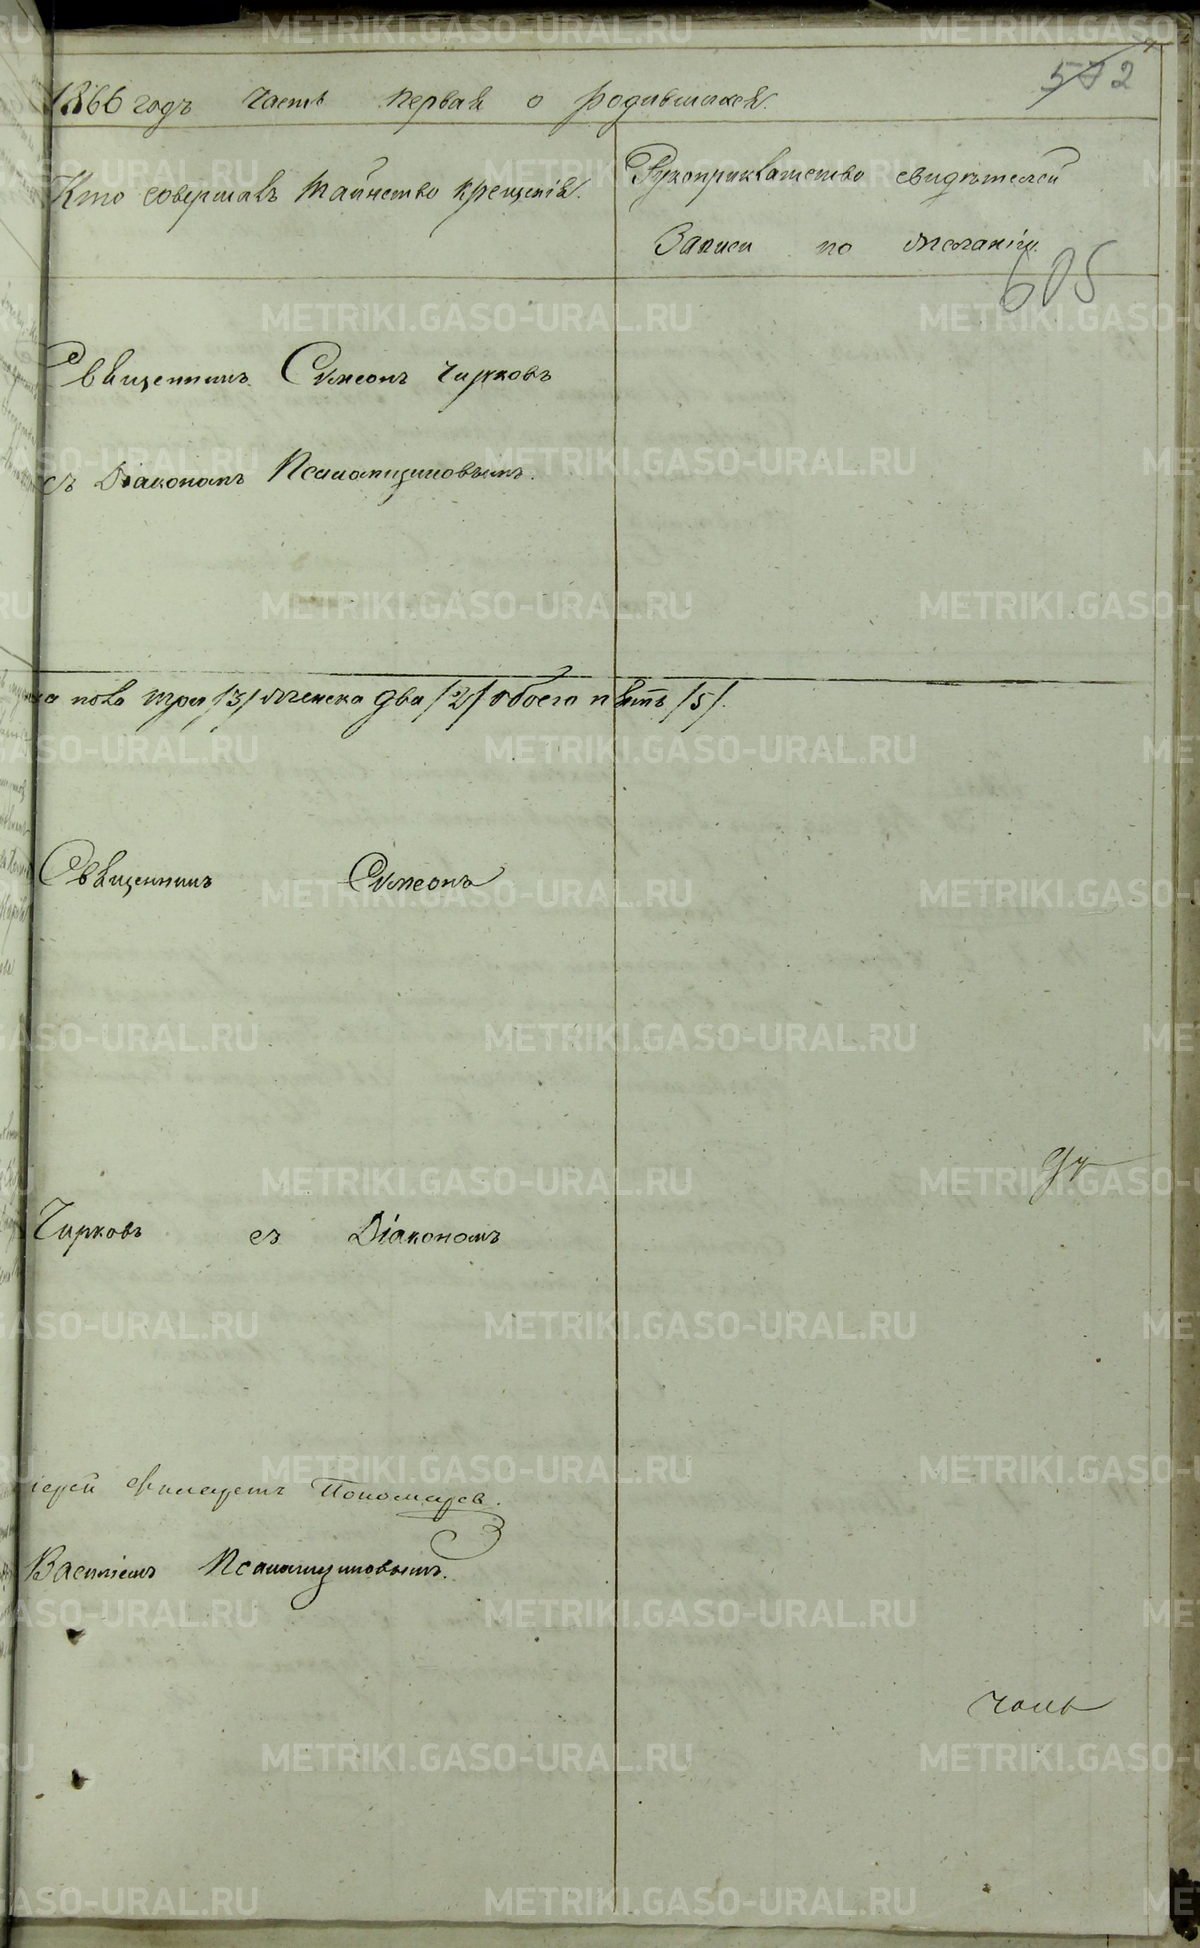 572
1866 годъ часть первая о родившихся.
Кто совершалъ таинство крещенія.
Рукоприкладство свидѣтелей
записи по желанію.
605
Священникъ Симеонъ Чирковъ
съ Діакономъ Псаломщиковымъ.
пола три /3/ женска два /2/ обоего пять /5/.
Священникъ Симеонъ
Чирковъ съ Діакономъ
іерей Филаретъ Пономарев.
Василіемъ Псаломщиковымъ.
METRIKI.GASO-URAL.RU